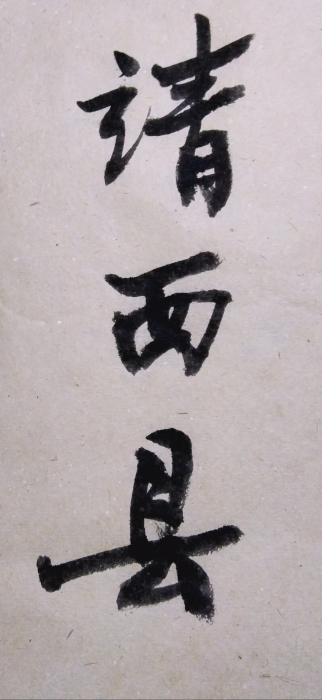 靖西县